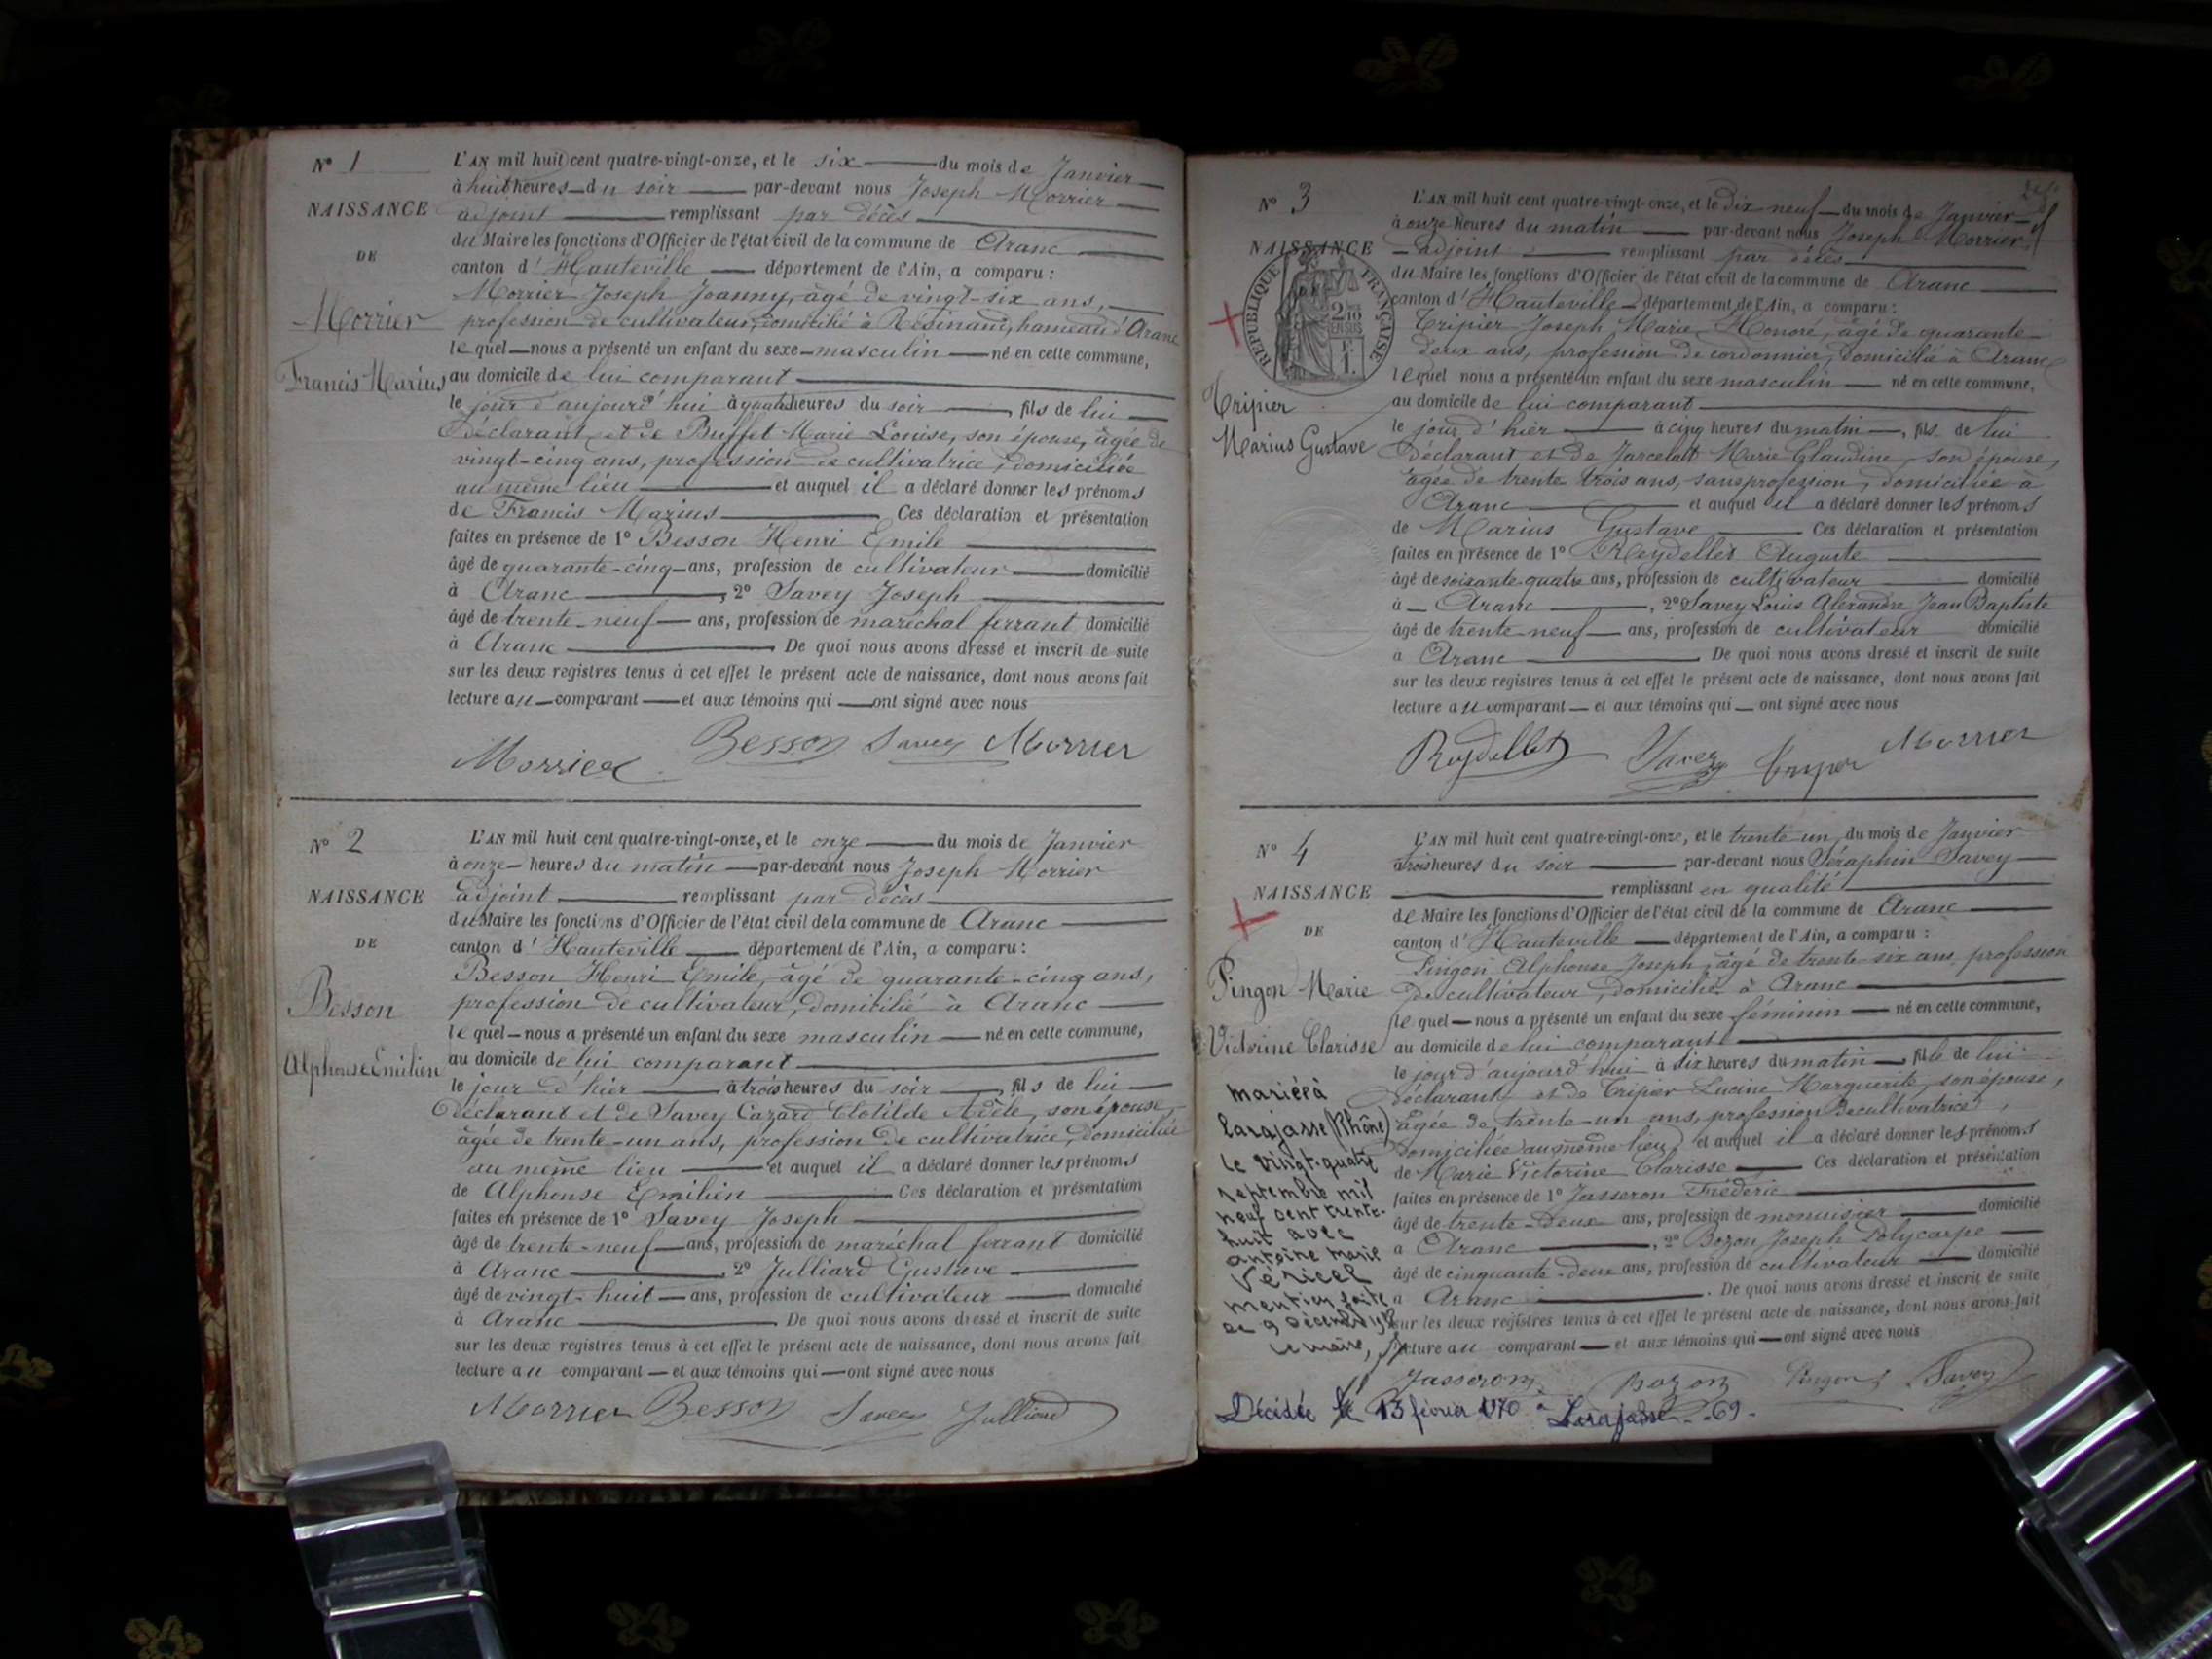 N° 1
NAISSANCE
DE
Morrier
Francis Marius
L'AN mil huit cent quatre-vingt-onze, et le six du mois de Janvier
à huit heures du soir par-devant nous Joseph Morrier
adjoint remplissant par décès
du Maire les fonctions d'Officier de l'état civil de la commune de Aranc
canton d'Hauteville département de l'Ain, a comparu :
Morrier Joseph Joanny, âgé de vingt-six ans,
profession de cultivateur, domicilié à Résinand, hameau d'Aranc
lequel nous a présenté un enfant du sexe masculin né en cette commune,
au domicile de lui comparant
le jour d'aujourd'hui à quatre heures du soir, fils de lui
déclarant et de Buffet Marie Louise, son épouse, âgée de
vingt-cinq ans, profession de cultivatrice, domiciliée
au même lieu et auquel il a déclaré donner les prénoms
de Francis Marius. Ces déclaration et présentation
faites en présence de 1° Besson Henri Emile
âgé de quarante-cinq ans, profession de cultivateur domicilié
à Aranc, 2° Savey Joseph
âgé de trente-neuf ans, profession de maréchal ferrant domicilié
à Aranc. De quoi nous avons dressé et inscrit de suite
sur les deux registres tenus à cet effet le présent acte de naissance, dont nous avons fait
lecture au comparant et aux témoins qui ont signé avec nous
Morrier Besson Savey Morrier
N° 2
NAISSANCE
DE
Besson
Alphonse Emilien
L'AN mil huit cent quatre-vingt-onze, et le onze du mois de Janvier
à onze heures du matin par-devant nous Joseph Morrier
adjoint remplissant par décès
du Maire les fonctions d'Officier de l'état civil de la commune de Aranc
canton d'Hauteville département de l'Ain, a comparu :
Besson Henri Emile, âgé de quarante-cinq ans,
profession de cultivateur, domicilié à Aranc
lequel nous a présenté un enfant du sexe masculin né en cette commune,
au domicile de lui comparant
le jour d'hier à trois heures du soir, fils de lui
déclarant et de Savey Cazard Clotilde Adèle, son épouse
âgée de trente-un ans, profession de cultivatrice, domiciliée
au même lieu et auquel il a déclaré donner les prénoms
de Alphonse Emilien. Ces déclaration et présentation
faites en présence de 1° Savey Joseph
âgé de trente-neuf ans, profession de maréchal ferrant domicilié
à Aranc, 2° Julliard Gustave
âgé de vingt-huit ans, profession de cultivateur domicilié
à Aranc. De quoi nous avons dressé et inscrit de suite
sur les deux registres tenus à cet effet le présent acte de naissance, dont nous avons fait
lecture au comparant et aux témoins qui ont signé avec nous
Morrier Besson Savey Julliard
N° 3
NAISSANCE
REPUBLIQUE FRANÇAISE
2/10 EN SUS
Tripier
Marius Gustave
L'AN mil huit cent quatre-vingt-onze, et le dix neuf du mois de Janvier
à onze heures du matin par-devant nous Joseph Morrier
adjoint remplissant par décès
du Maire les fonctions d'Officier de l'état civil de la commune de Aranc
canton d'Hauteville département de l'Ain, a comparu :
Tripier Joseph Marie Honoré, âgé de quarante-
deux ans, profession de cordonnier, domicilié à Aranc
lequel nous a présenté un enfant du sexe masculin né en cette commune,
au domicile de lui comparant
le jour d'hier à cinq heures du matin, fils de lui
déclarant et de Jarcelat Marie Claudine, son épouse,
âgée de trente trois ans, sans profession, domiciliée à
Aranc et auquel il a déclaré donner les prénoms
de Marius Gustave. Ces déclaration et présentation
faites en présence de 1° Reydellet Auguste
âgé de soixante-quatre ans, profession de cultivateur domicilié
à Aranc, 2° Savey Louis Alexandre Jean Baptiste
âgé de trente-neuf ans, profession de cultivateur domicilié
a Aranc. De quoi nous avons dressé et inscrit de suite
sur les deux registres tenus à cet effet le présent acte de naissance, dont nous avons fait
lecture au comparant et aux témoins qui ont signé avec nous
Reydellet Savey Tripier Morrier
N° 4
NAISSANCE
DE
Pingon Marie
Victorine Clarisse
mariée à
Larajasse (Rhône)
le vingt-quatre
septembre mil
neuf cent trente-
huit avec
Antoine Marie
Véricel
mention faite
le 9 décembre 1938
Le maire,
L'AN mil huit cent quatre-vingt-onze, et le trente-un du mois de Janvier
à trois heures du soir par-devant nous Séraphin Savey
remplissant en qualité
de Maire les fonctions d'Officier de l'état civil de la commune de Aranc
canton d'Hauteville département de l'Ain, a comparu :
Pingon Alphonse Joseph, âgé de trente-six ans, profession
de cultivateur, domicilié à Aranc
lequel nous a présenté un enfant du sexe féminin né en cette commune,
au domicile de lui comparant
le jour d'aujourd'hui à dix heures du matin, fille de lui
déclarant et de Tripier Lucine Marguerite, son épouse,
âgée de trente-un ans, profession de cultivatrice,
domiciliée au même lieu et auquel il a déclaré donner les prénoms
de Marie Victorine Clarisse. Ces déclaration et présentation
faites en présence de 1° Jasseron Frédéric
âgé de trente-deux ans, profession de menuisier domicilié
a Aranc, 2° Bozon Joseph Polycarpe
âgé de cinquante-deux ans, profession de cultivateur domicilié
a Aranc. De quoi nous avons dressé et inscrit de suite
sur les deux registres tenus à cet effet le présent acte de naissance, dont nous avons fait
lecture au comparant et aux témoins qui ont signé avec nous
Jasseron Bozon Pingon Savey
Décédée le 13 février 1970 à Larajasse - 69 -